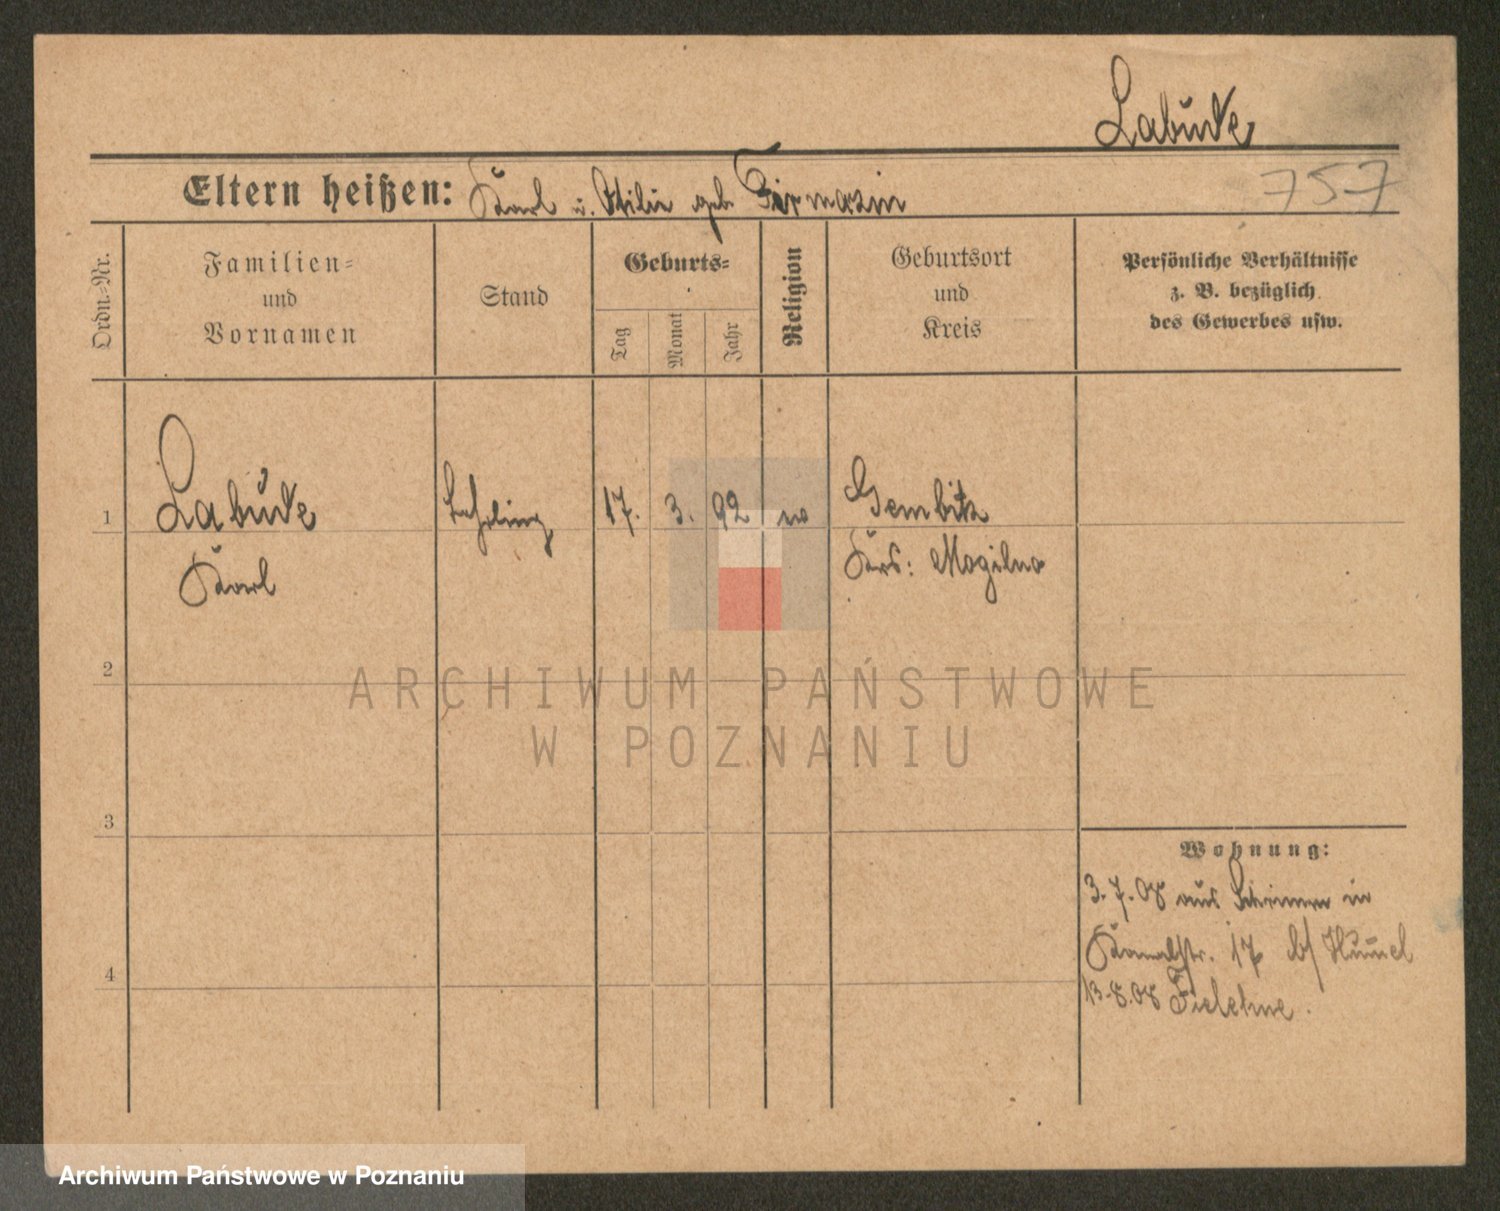 Labude
Eltern heißen: Karl u. Otilie geb. Firmasin
757
Ordn.-Nr.
Familien-
und
Vornamen
Stand
Geburts-
Tag
Monat
Jahr
Religion
Geburtsort
und
Kreis
Persönliche Verhältnisse
z. B. bezüglich
des Gewerbes usw.
1
Labude
Karl
Lehrling
17. 3. 92
Gembitz
Krs: Mogilno
2
3
4
Wohnung:
3. 7. 08 aus in
Kanalstr. 17 b/ Hummel
13.8.08 Filehne.
ARCHIWUM PAŃSTWOWE
W POZNANIU
Archiwum Państwowe w Poznaniu